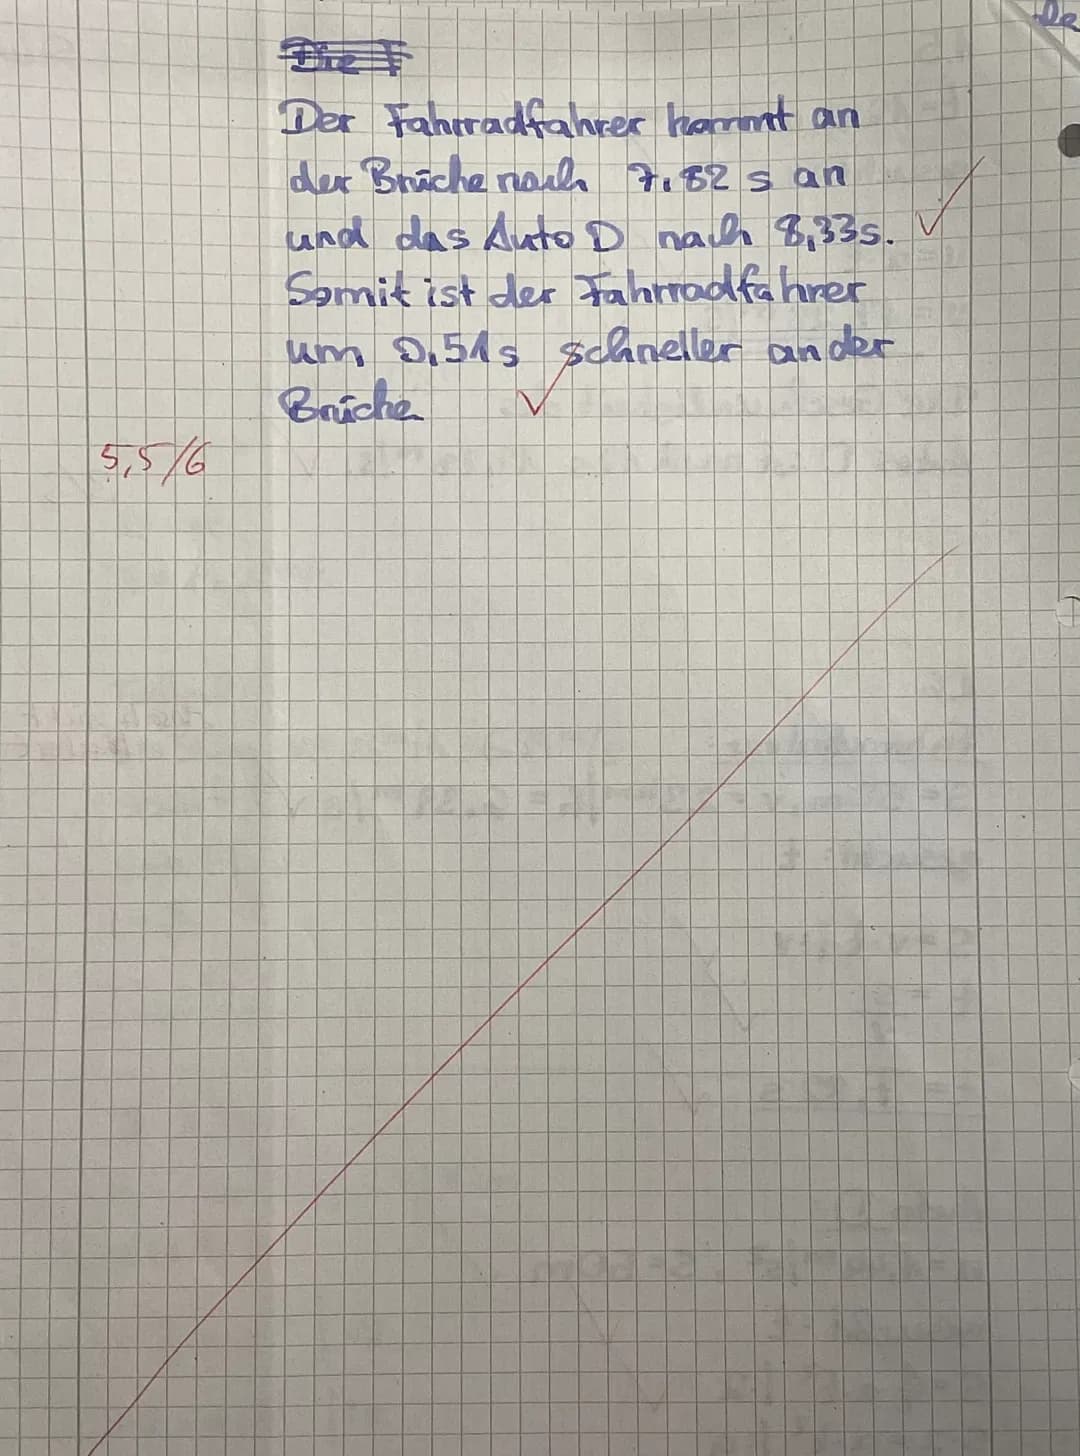 Der Fahrradfahrer kommt an
der Brücke nach 7.82 s an
und das Auto D nach 8,33s.
Somit ist der Fahrradfahrer
um 0.51s schneller an der
Brücke
5,5/6